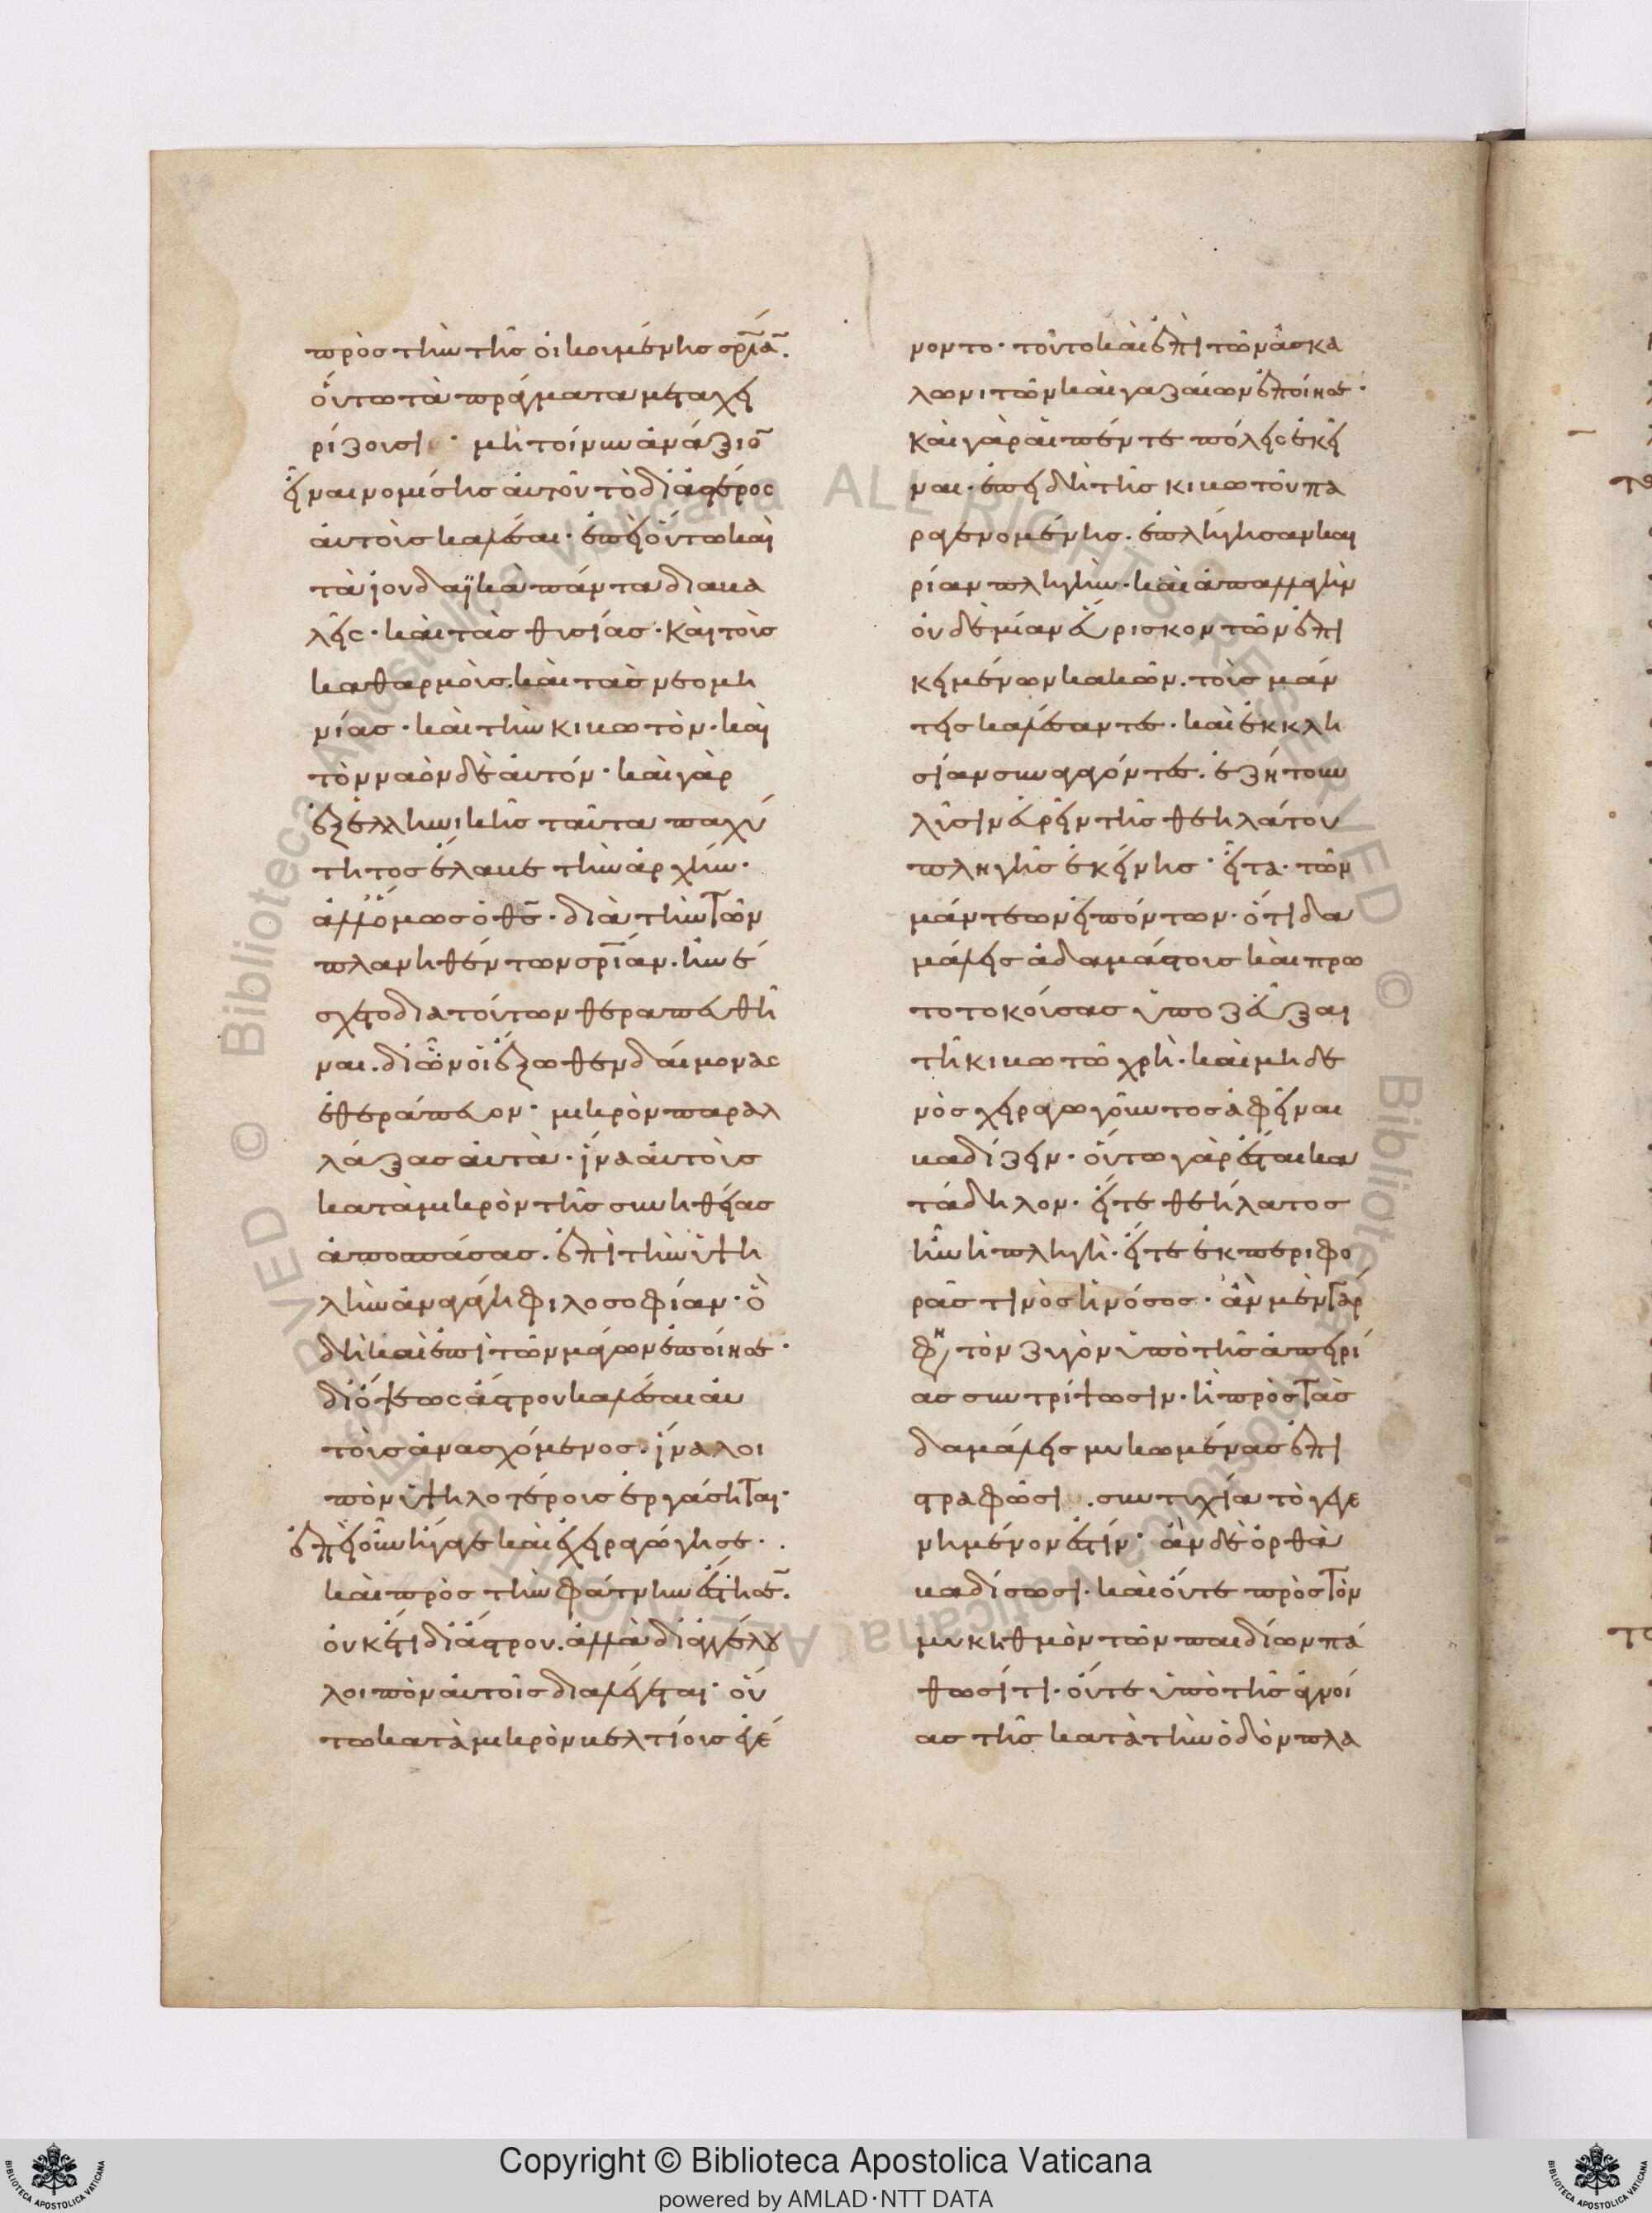 πρὸς τὴν τῆς οἰκουμένης σρίαν.
οὕτω τὰ πράγματα μεταχει
ρίζουσι· μὴ τοίνυν ἀνάξιον
εἶναι νομίσῃς αὐτοῦ τὸ δι ἀστέρος
αὐτοὺς καλέσαι· ἐπεὶ οὕτω καὶ
τὰ ἰουδαϊκὰ πάντα διαβα
λεῖς· καὶ τὰς θυσίας· καὶ τοὺς
καθαρμοὺς. καὶ τὰς νεομη
νίας· καὶ τὴν κιβωτὸν· καὶ
τὸν ναὸν δὲ αὐτόν· καὶ γὰρ
ἐξ ἑλληνικῆς ταῦτα παχύ
τητος ἔλαβε τὴν ἀρχήν·
ἀλλ ὅμως ὁ θς. διὰ τὴν τῶν
πλανηθέντων σρίαν. ἠνέ
σχετο δια τούτων θεραπευθῆ
ναι. δι ὧν οἱ ἔξωθεν δαίμονας
ἐθεράπευον· μικρὸν παραλ
λάξας αὐτὰ· ἵνα αὐτοὺς
κατὰ μικρὸν τῆς συνηθείας
ἀποσπάσας. ἐπὶ τὴν ὑψη
λὴν ἀναγάγῃ φιλοσοφίαν· ὃ
δὴ καὶ ἐπὶ τῶν μάγων ἐποίησε·
δι ὄψεως ἄστρου καλέσαι αὐ
τοὺς ἀνασχόμενος. ἵνα λοι
πὸν ὑψηλοτέρους ἐργάσηται·
ἐπεὶ οὖν ἤγαγε καὶ ἐχειραγώγησε.
καὶ πρὸς τὴν φάτνην ἔστησεν.
οὐκέτι δι ἄστρου. ἀλλὰ δι ἀγγέλου
λοιπὸν αὐτοῖς διαλέγεται· οὕ
τω κατὰ μικρὸν βελτίους ἐγέ
νοντο· τοῦτο καὶ ἐπὶ τῶν ἀσκα
λωνιτῶν καὶ γαζαίων ἐποίησε·
καὶ γὰρ αἱ πέντε πόλεις ἐκεῖ
ναι. ἐπειδὴ τῆς κιβωτοῦ πα
ραγενομένης. ἐπλήγησαν και
ρίαν πληγὴν. καὶ ἀπαλλαγὴν
οὐδεμίαν εὕρισκον τῶν ἐπι
κειμένων κακῶν. τοὺς μάν
τεις καλέσαντες. καὶ ἐκκλη
σίαν συναγαγόντες. ἐζήτουν
λῦσιν εὑρεῖν τῆς θεηλάτου
πληγῆς ἐκείνης· εἶτα. τῶν
μάντεων εἰπόντων. ὅτι δα
μάλεις ἀδαμάστους καὶ πρω
τοτοκούσας ὑποζεῦξαι
τῇ κιβωτῷ χρὴ. καὶ μηδε
νὸς χειραγωγοῦντος ἀφεῖναι
βαδίζειν. οὕτω γὰρ ἔσται κα
τάδηλον. εἴτε θεήλατος
ἦν ἡ πληγὴ. εἴτε ἐκ περιφο
ρᾶς τινὸς ἡ νόσος· ἂν μὲν γάρ
φη τὸν ζυγὸν ὑπὸ τῆς ἀπειρί
ας συντρίψωσιν. ἢ πρὸς τὰς
δαμάλεις μυκωμένας ἐπι
στραφῶσι. συντυχία τὸ γεγε
νημένον ἐστίν· ἂν δὲ ὀρθὰ
βαδίσωσι. καὶ οὔτε πρὸς τὸν
μυκηθμὸν τῶν παιδίων πά
θωσί τι. οὔτε ὑπὸ τῆς ἀγνοί
ας τῆς κατὰ τὴν ὁδὸν πλα
Copyright © Biblioteca Apostolica Vaticana
powered by AMLAD·NTT DATA